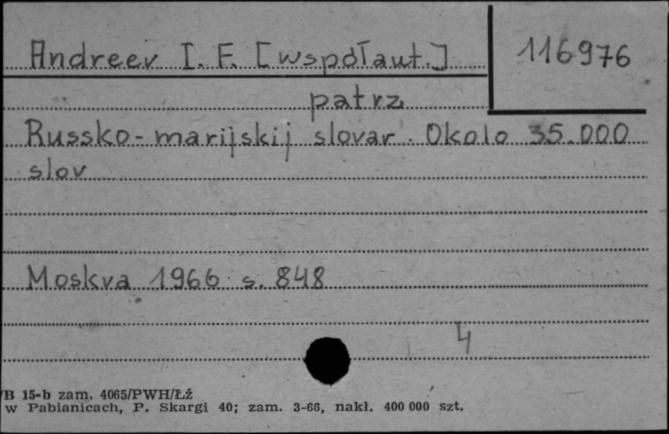 Andreev I. F. [współaut.]
116976
patrz
Russko-marijskij slovar. Okolo 35.000
slov
Moskva 1966 s. 848
4
/B 15-b zam. 4065/PWH/Łź
w Pabianicach, P. Skargi 40; zam. 3-66, nakł. 400 000 szt.